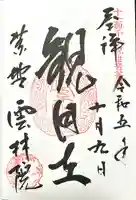 奉拝 令和五年
十月九日
観自在
紫野 雲林院